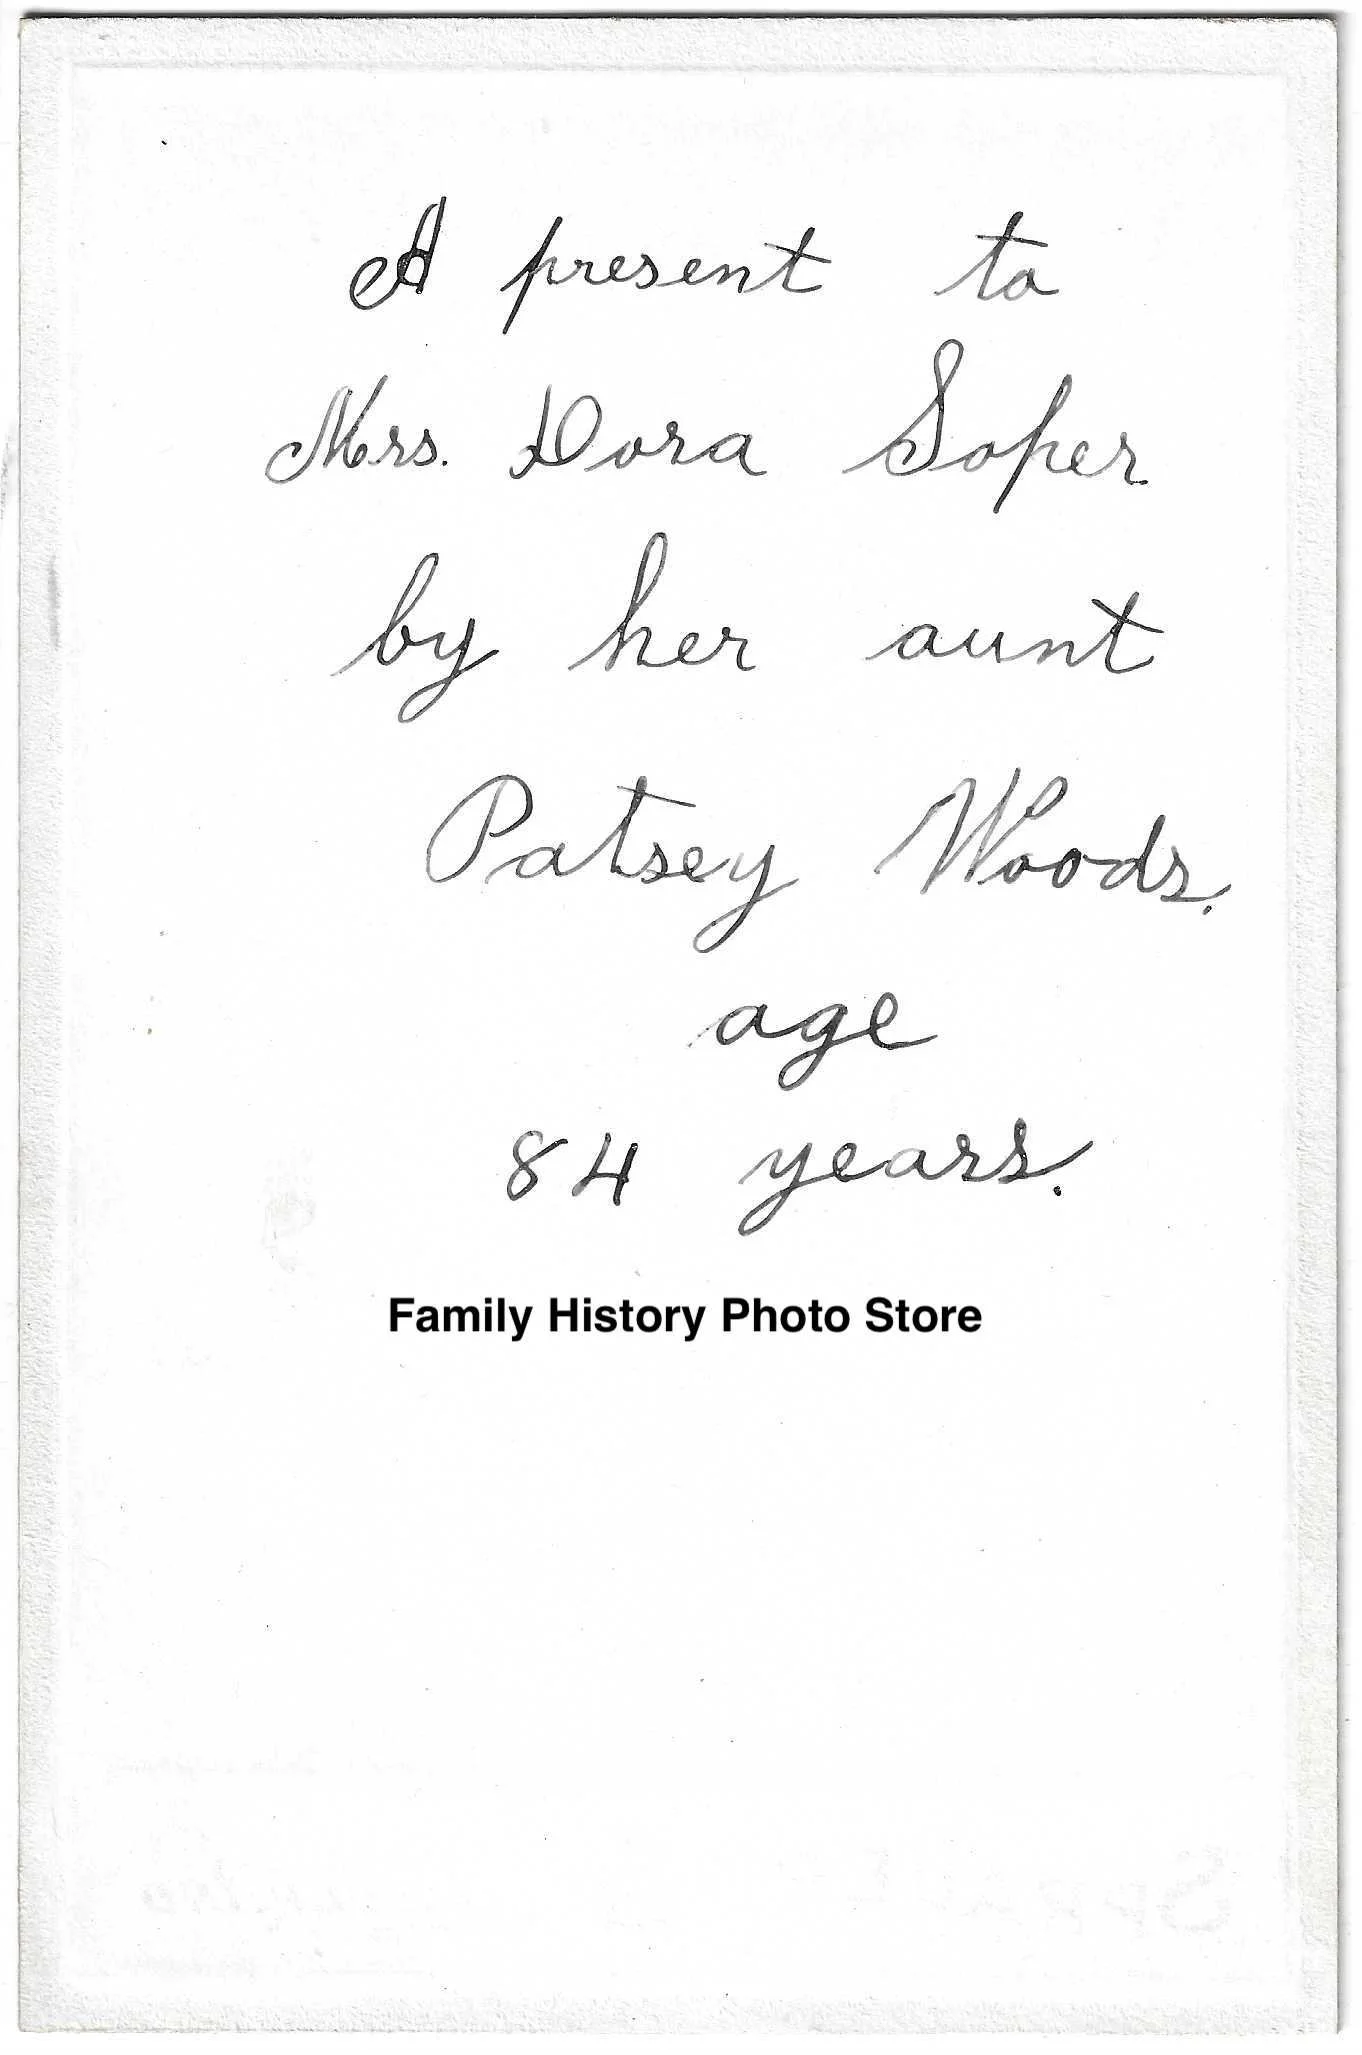 A present to
Mrs. Dora Soper
by her aunt
Patsey Woods.
age
84 years.
Family History Photo Store